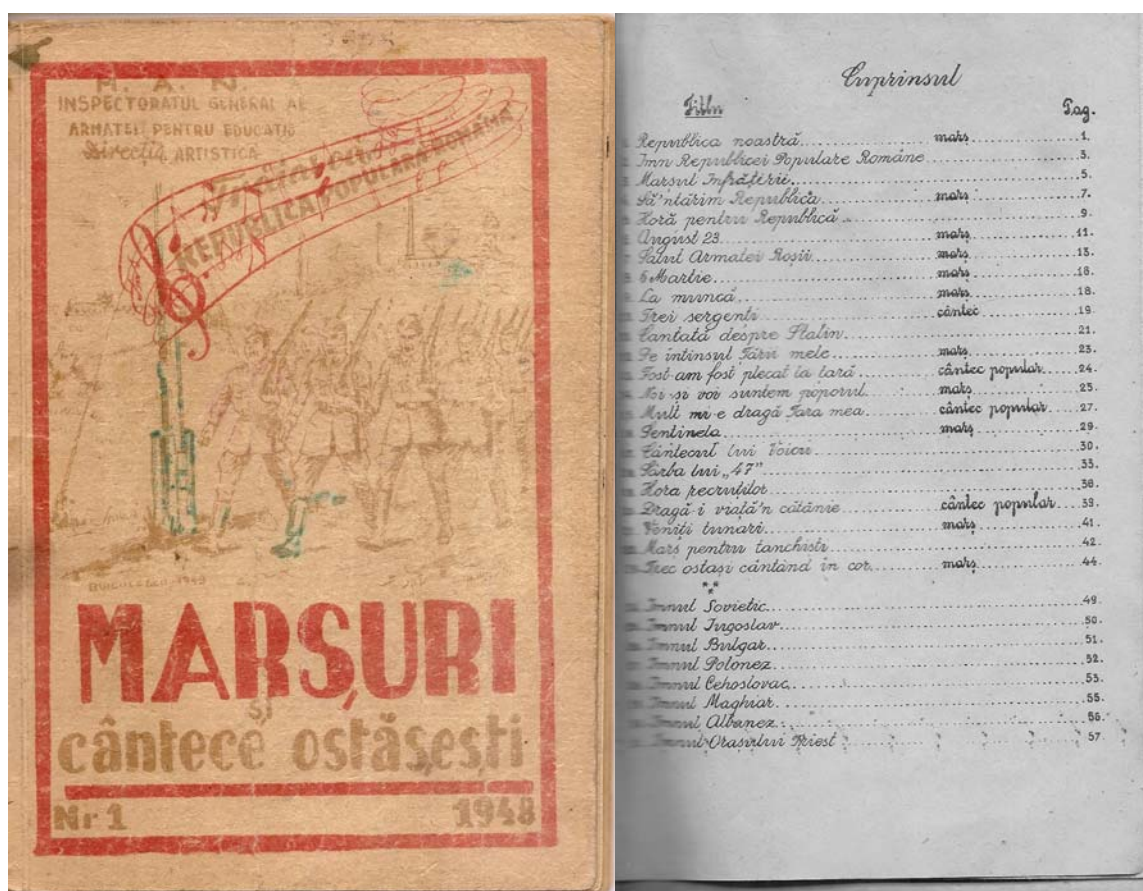 M. A. N.
INSPECTORATUL GENERAL AL
ARMATEI PENTRU EDUCAȚIE
Direcția ARTISTICA
REPUBLICA POPULARĂ ROMÂNĂ
MARȘURI
și
cântece ostășești
Nr 1 1948
Cuprinsul
Titlu Pag.
Republica noastră marș 1.
Imn Republicei Populare Române 3.
Marșul Înfrățirii 5.
Să'ntărim Republica marș 7.
Horă pentru Republică 9.
August 23 marș 11.
Salut Armatei Roșii marș 13.
6 Martie marș 16.
La muncă marș 18.
Trei sergenți cântec 19.
Cantată despre Stalin 21.
Pe întinsul Țării mele marș 23.
Fost-am fost plecat la țară cântec popular 24.
Noi și voi suntem poporul marș 25.
Mult mi-e dragă Țara mea cântec popular 27.
Sentinela marș 29.
Cântecul lui Voicu 30.
Sârba lui „47" 33.
Hora recruților 38.
Dragă-i viață'n cătănie cântec popular 39.
Veniți tunari marș 41.
Marș pentru tanchiști 42.
Trec ostași cântând în cor marș 44.
Imnul Sovietic 49.
Imnul Iugoslav 50.
Imnul Bulgar 51.
Imnul Polonez 52.
Imnul Cehoslovac 53.
Imnul Maghiar 55.
Imnul Albanez 56.
Imnul Orașului Triest 57.